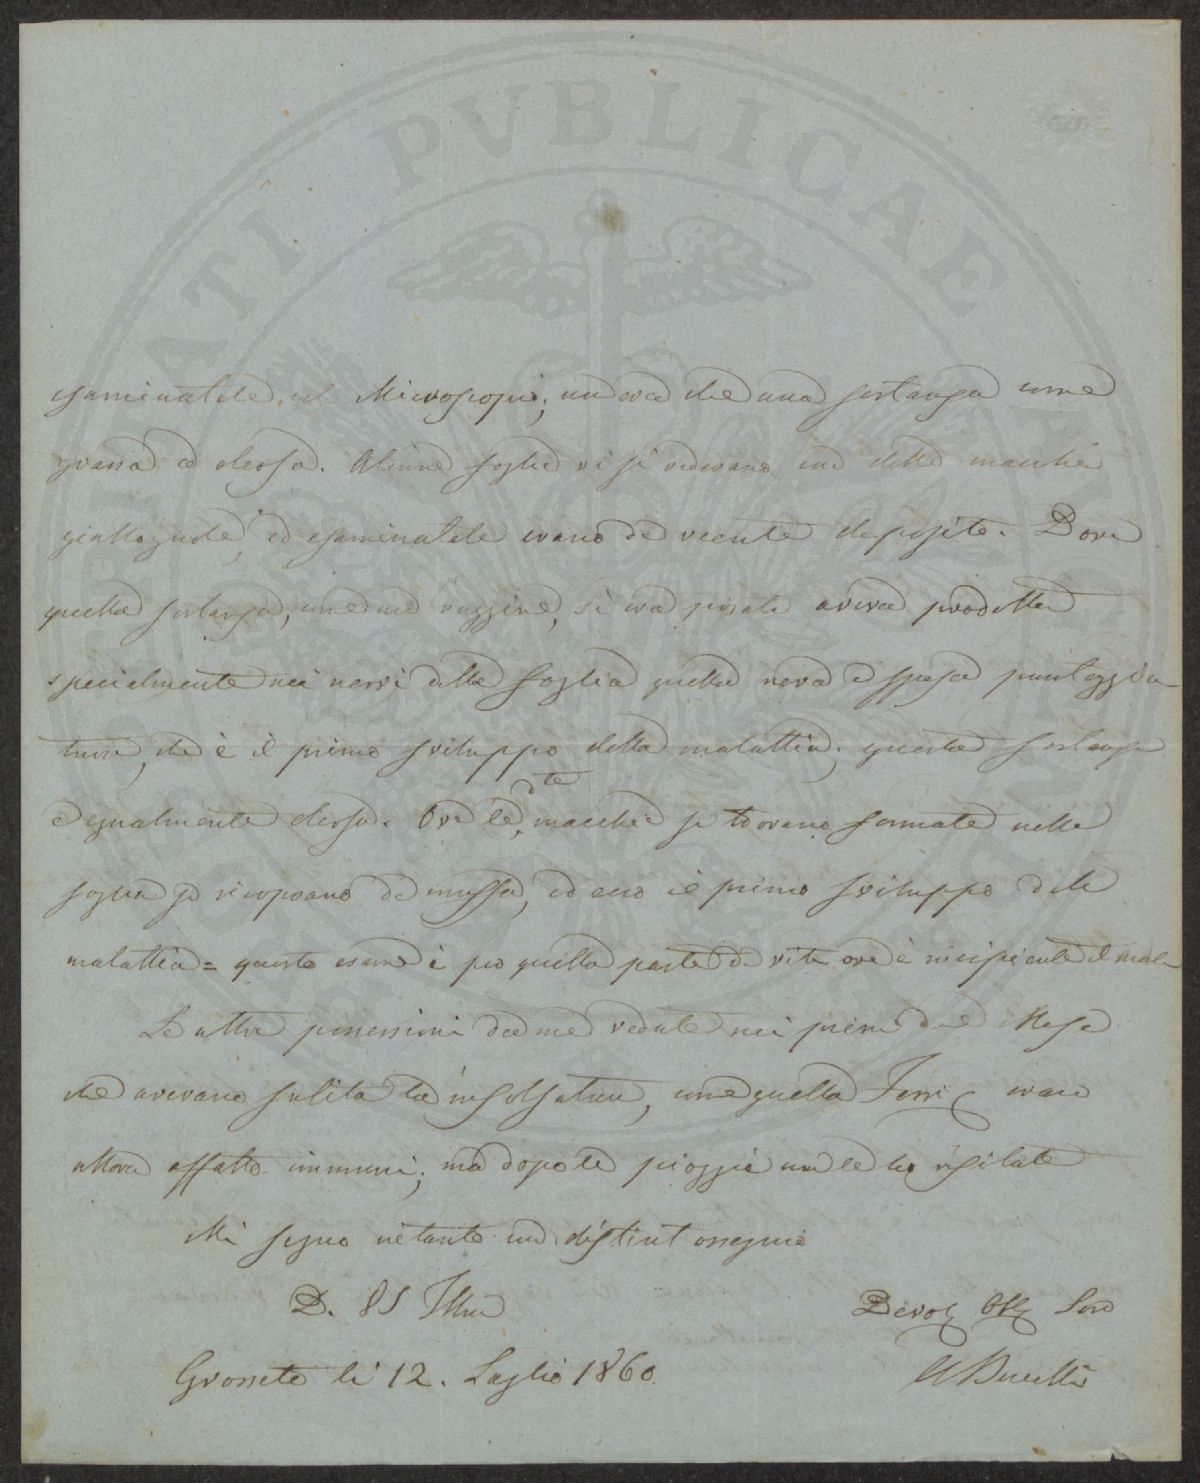 PVBLICAE
esaminatele col Microscopio, non era che una sostanza come
grassa e oleosa. Alcune foglie vi si vedevano con delle macchie
giallognole, ed esaminatele erano di recente deposito. Dove
quella sostanza, come una ruggine, si era posata aveva prodotta
specialmente nei nervi della foglia quella nera e spessa punteggia
tura, che è il primo sviluppo della malattia; questa sostanza
è egualmente oleosa. Ove le dte macchie si trovano formate nelle
foglie si ricoprano di muffa, ed ecco il primo sviluppo della
malattia = questo esame è per quella parte di vite ove è incipiente il male
Le altre possessioni da me vedute nei primi del Mese
che avevano subita la insolfatura, come quella Ferri erano
allora affatto immuni; ma dopo le pioggie non le ho visitate
Mi segno intanto con distint ossequio
D. VS Illma
Devot Obb Serv
Grosseto li 12. Luglio 1860